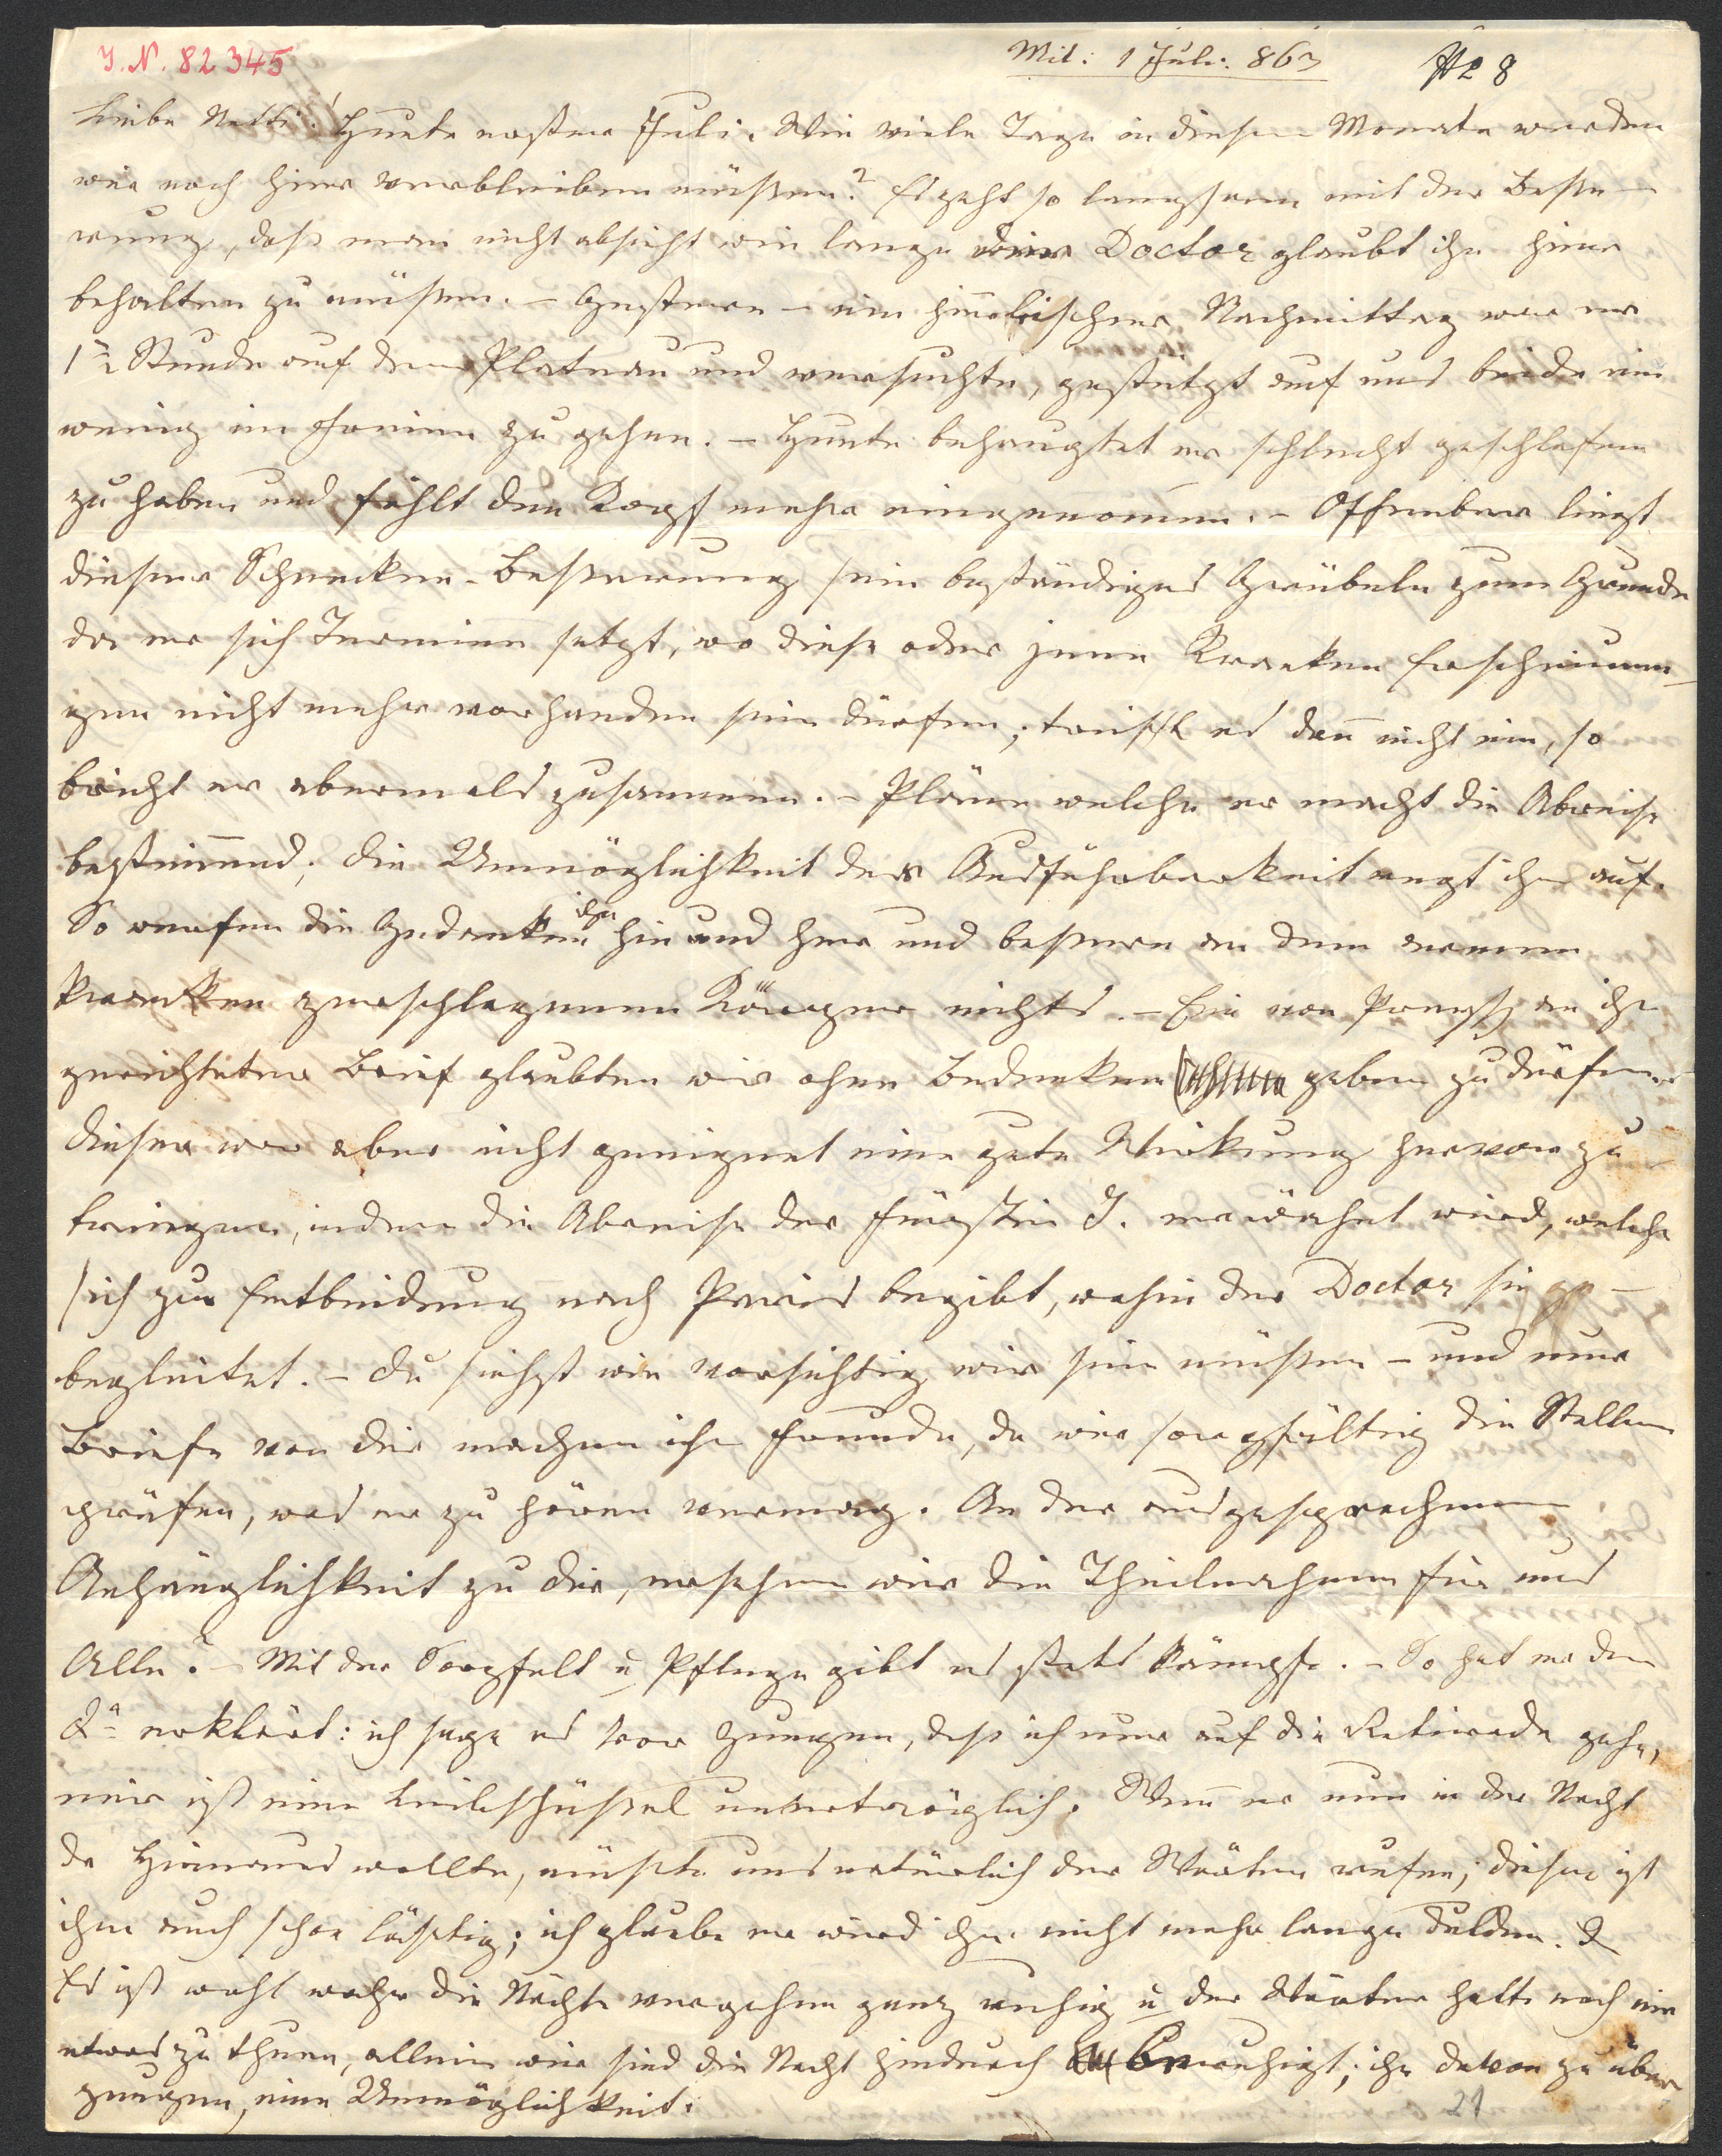 J. N. 82345
Mit: 1 Juli: 863 No 8
Liebe Netti! Heute erster Juli. Wie viele Tage in diesem Monate werden
wir noch hier verbleiben müßen? Es geht so langsam mit der Beße-
rung, daß man nicht absieht wie lange der Doctor glaubt ihn hier
behalten zu müßen. – Gestern – ein himlischer Nachmittag war er
1½ Stunde auf dem Plateau und versuchte, gestützt auf uns beide ein
wenig im Freien zu gehen. – Heute behauptet er schlecht geschlafen
zu haben und fühlt den Kopf mehr eingenomen. – Offenbar liegt
dieser Schnecken-Beßerung sein beständiges Grübeln zum Grunde
da er sich Termine setzt, wo diese oder jene Kranken Erscheinun-
gen nicht mehr vorhanden sein dürfen; trifft es dan nicht ein, so
bricht er abermals zusammen. – Pläne welche er macht die Abreise
bestimend; die Unmöglichkeit der Ausführbarkeit regt ihn auf.
So werfen die Gedanken ihn hin und her und beßern an dem armen
kranken zerschlagenen Körper nichts. – Ein von an ihn
gerichteter Brief glaubten wir ohne Bedenken geben zu dürfen
dieser war aber nicht geeignet eine gute Wirkung hervor zu
bringen, indem die Abreise der Fürstin J. erwähnt wird, welche
sich zur Entbindung nach Paris begibt, wohin der Doctor sie
begleitet. – Du siehst wie vorsichtig wir sein müßen – und nur
Briefe von dir machen ihm Freude, da wir sorgfältig die Stellen
prüfen, was er zu hören vermag. An der ausgesprochenen
Anhänglichkeit zu dir, ersehen wir die Theilnahme für uns
Alle. – Mit der Sorgfalt u Pflege gibt es stets Kämpfe. – So hat er dem
Dr erklärt: ich sage es vor Zeugen, daß ich nur auf die Retirade gehe,
mir ist eine Leibschüßel unerträglich. Wen er nun in der Nacht
da hinaus wollte, müßte uns natürlich der Wärter rufen; dieser ist
ihm auch schon lästig; ich glaube er wird ihn nicht mehr lange dulden.
Es ist wohl wahr die Nächte vergehen ganz ruhig u der Wärter hatte noch nie
etwas zu thun, allein wir sind die Nacht hindurch beruhigt; ihn davon zu über
zeugen, eine Unmöglichkeit.
21